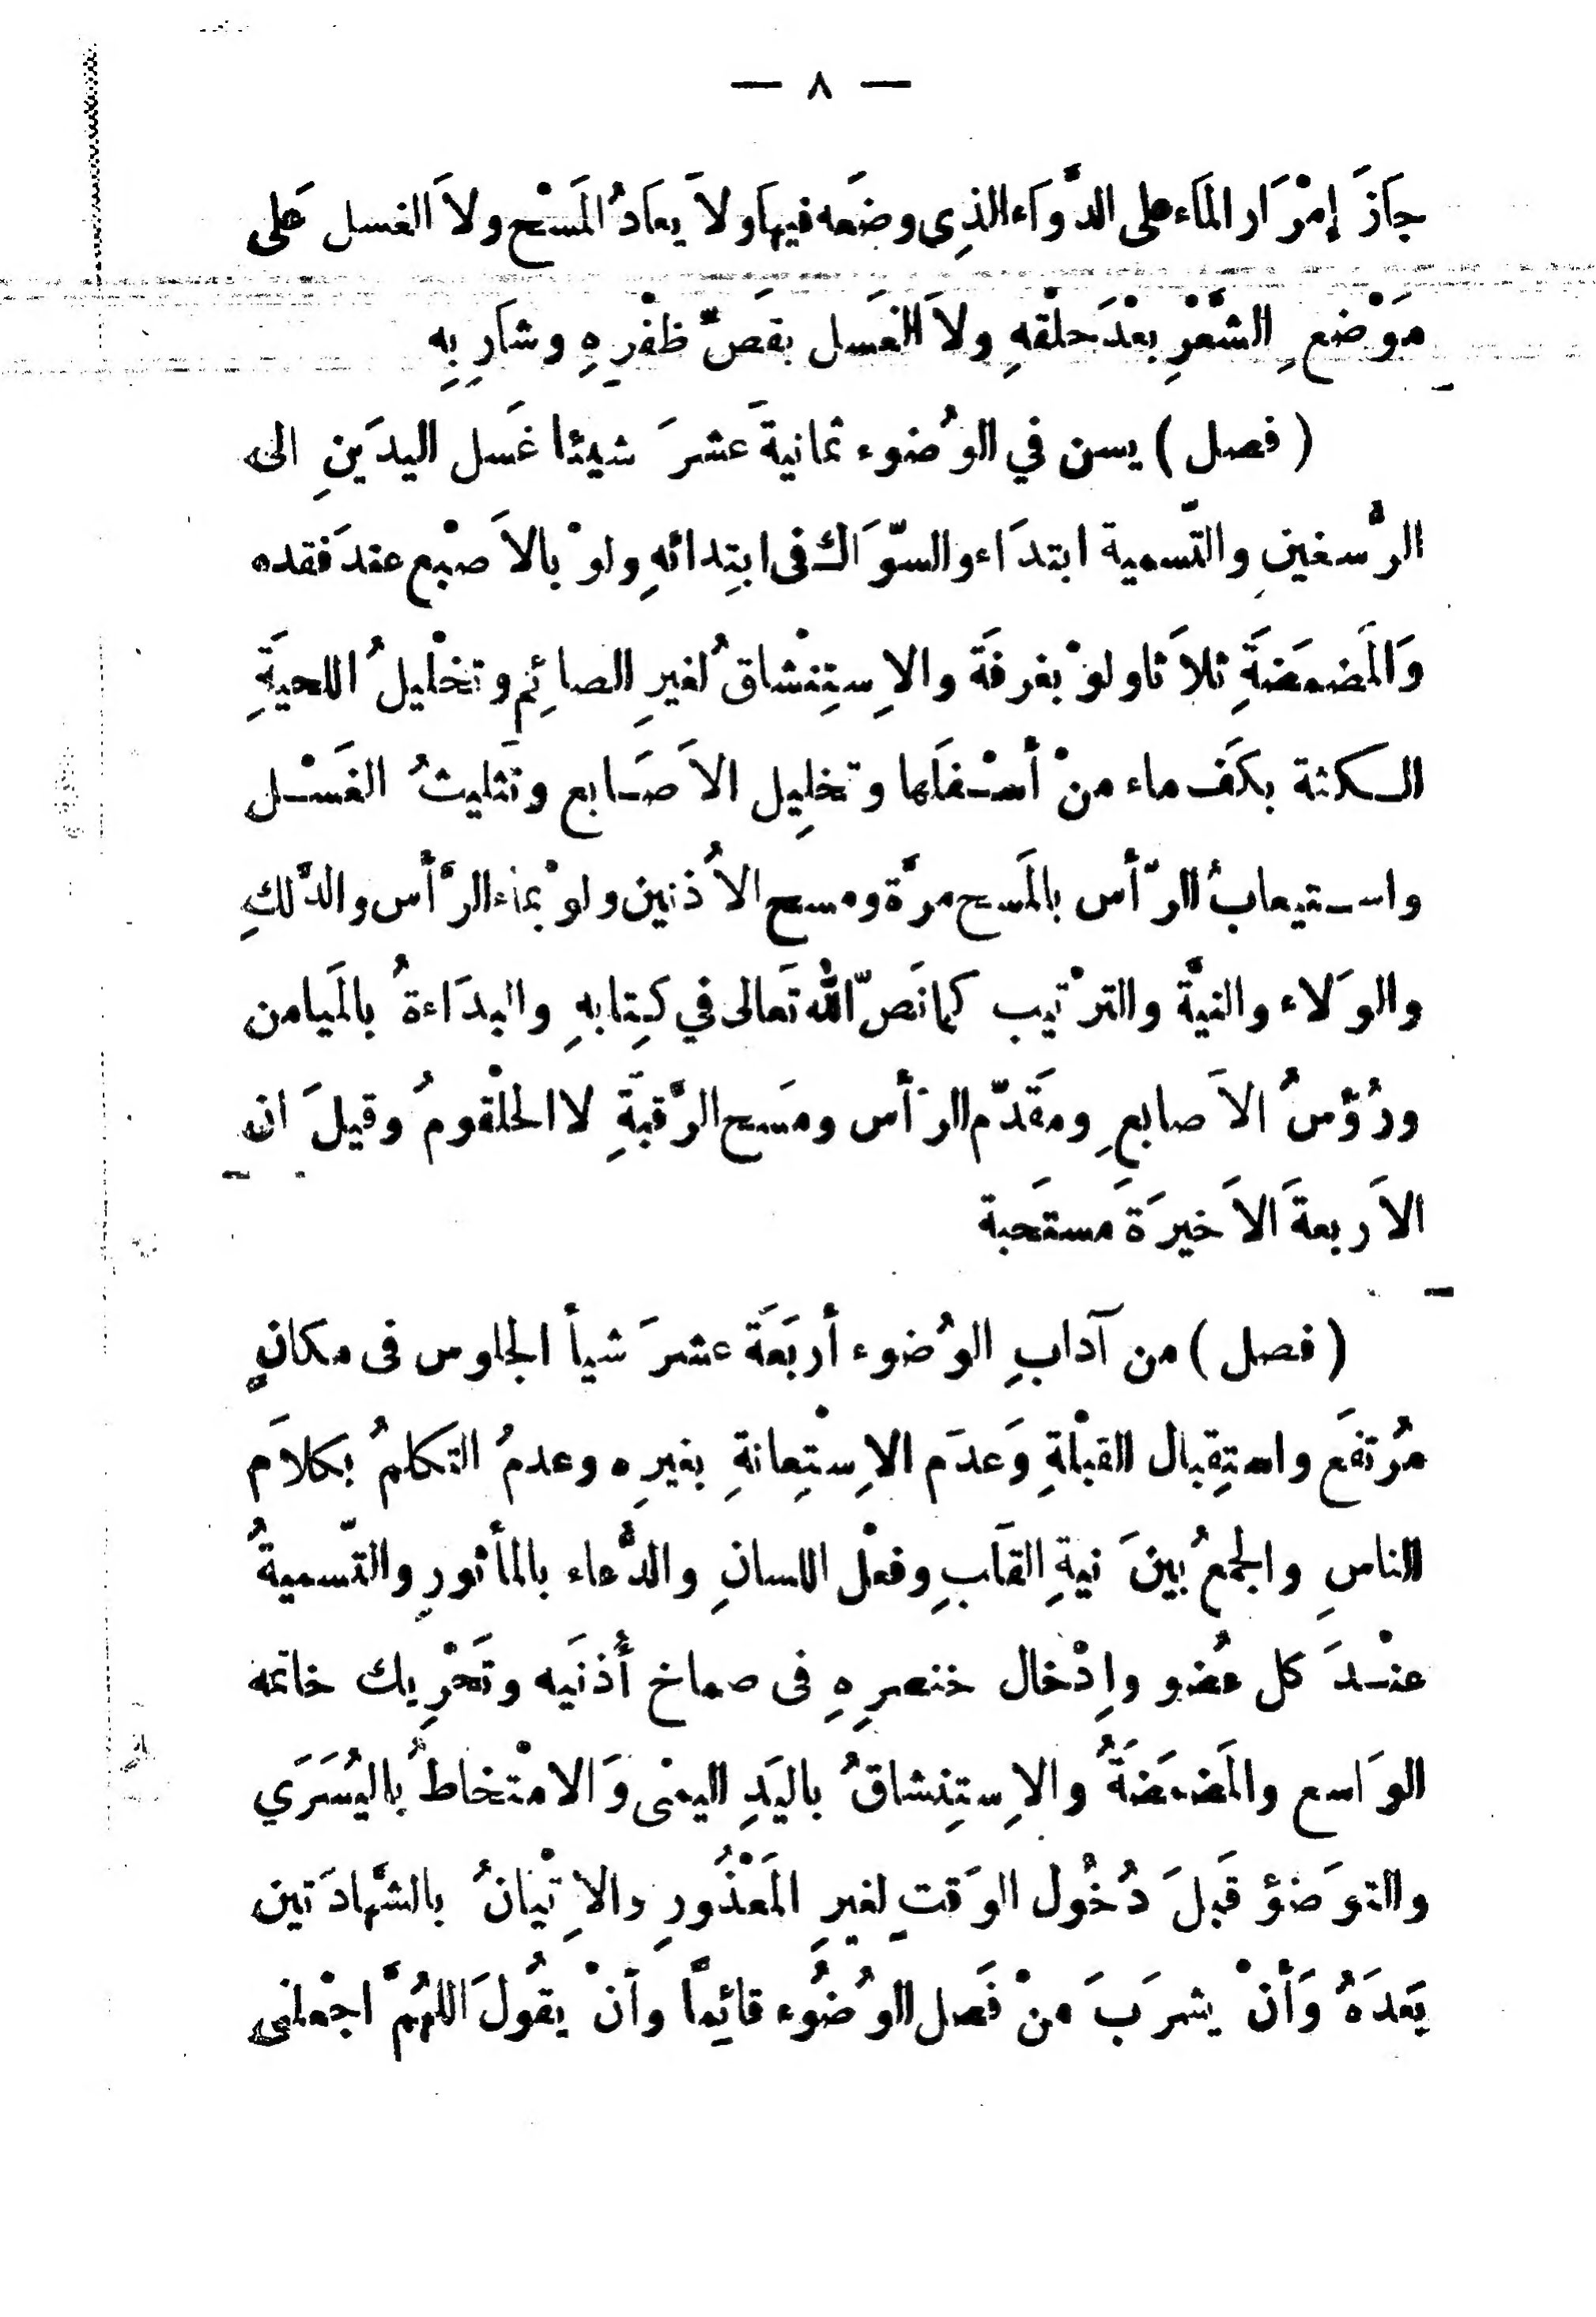 — ٨ —
جَازَ إِمْرَار المَاء على الدَّوَاء الذِي وضَعه فيهَا ولاَ يعَادُ المَسْح ولاَ الغسل عَلى
مَوْضع ِ الشَّعْرِ بعْدَ حلْقهِ ولاَ الغَسل بقَصّ ظفْرِهِ وشَارِبِهِ
( فصل ) يسن في الوُضوء ثمانيةَ عشرَ شيئا غَسل اليدَينِ الى
الرُّسغينِ والتّسمية ابتدَاء والسّوَاك فى ابتِدائهِ ولوْ بالاَصْبع عندَ فقده
وَالمَضمَضَةِ ثلاَثا ولوْ بغرفَة والاِستِنْشاقُ لغيرِ الصائِم وتخْليلُ اللحيَةِ
الـكثة بكَف ماء منْ أسْـفَلها وتخلِيل الاَصَـابع وتَثليثُ الغَسْـل
واسـتيعابُ الرّأس بالمَسح مرَّة ومسح الاُذنين ولوْ بمَاء الرَّأس والدَّلكِ
والوَلاء والنيَّة والترْتيب كما نَصّ اللّٰه تَعالى في كِتابهِ والبدَاءةُ بالمَيامن
ورُؤسُ الاَصابعِ ومقَدّم الرَأس ومَسح الرَّقبَةِ لا الحلْقومُ وقيلَ ان
الاَربعةَ الاَخيرَةَ مستَحبة
( فصل ) من آدابِ الوُضوء أربَعَةَ عشرَ شيأ الجلوس فى مكانٍ
مُرتفَع واستِقبال القبْلةِ وَعدَم الاِستْعِانةِ بغيرِه وعدمُ التكلمُ بكلاَم
الناسِ والجمعُ بينَ نيةِ القَلبِ وفعْل اللسانِ والدُّعاء بالمأثورِ والتّسميةُ
عنْـدَ كل عُضو واِدْخال خنصرِهِ فى صماخ أُذنَيه وتَحْرِيك خاتمه
الوَاسع والمَضمَضَةُ والاِستِنشاقُ باليَدِ اليمنى وَالامْتخاطُ باليُسَرَي
والتوَضؤ قَبلَ دُخُول الوَقتِ لغيرِ المَعْذُورِ والاِتْيانُ بالشّهادَتين
بَعدَهُ وَأنْ يشرَبَ منْ فَضل الوُضُوء قائِمًا وأنْ يقُولَ اللهُمَّ اجْعلنى